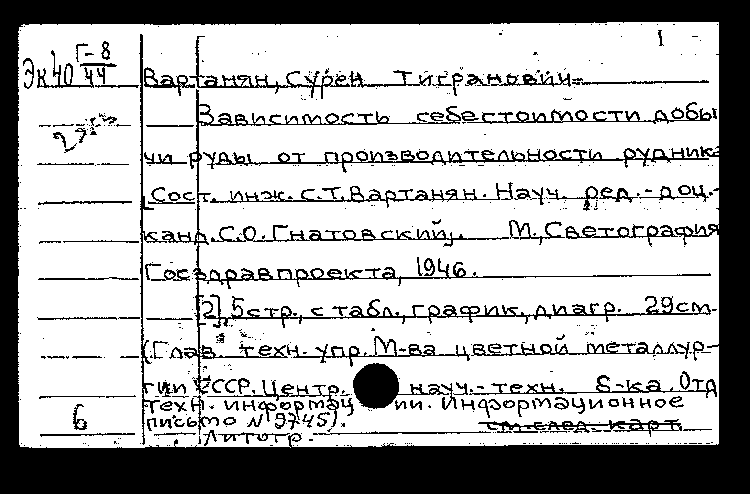 1
Эк40 Г-8
44
Вартанян, Сурен Тигранович.
Зависимость себестоимости добы
чи руды от производительности рудника
[Сост. инж. С.Т.Вартанян. Науч. ред.-доц.-
канд. С.О.Гнатовский]. М., Светография
Госздравпроекта, 1946.
[2], 5 стр., с табл., график., диагр. 29см.
(Глав. техн. упр. М-ва цветной металлур-
гии СССР. Центр. науч.-техн. б-ка. Отд
техн. информации. Информационное
письмо №9745).
см.след. карт.
Литогр.
6